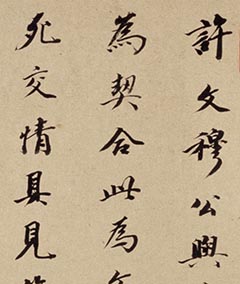 許文穆公與
為契合此為
死交情具見